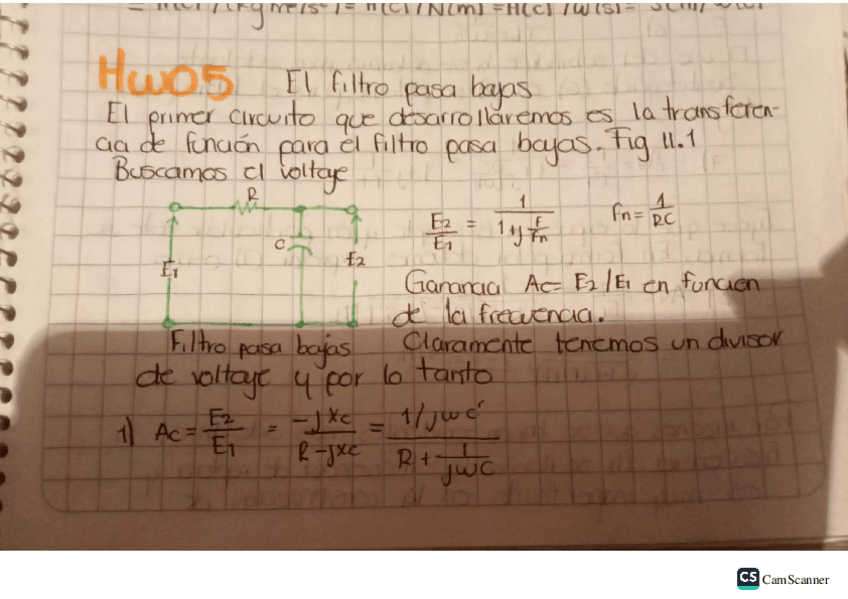 HW05 El filtro pasa bajas
El primer circuito que desarrollaremos es la transferen-
cia de función para el filtro pasa bajas. Fig 11.1
Buscamos el voltaje
R
C
E1
E2
E2/E1 = 1/(1+j F/Fn) fn = 1/RC
Ganancia Ac= E2/E1 en funcion
de la frecuencia.
Filtro pasa bajas Claramente tenemos un divisor
de voltaje y por lo tanto
1) Ac = E2/E1 = -jxc/(R-jxc) = (1/jwc)/(R+1/jwC)
CS CamScanner